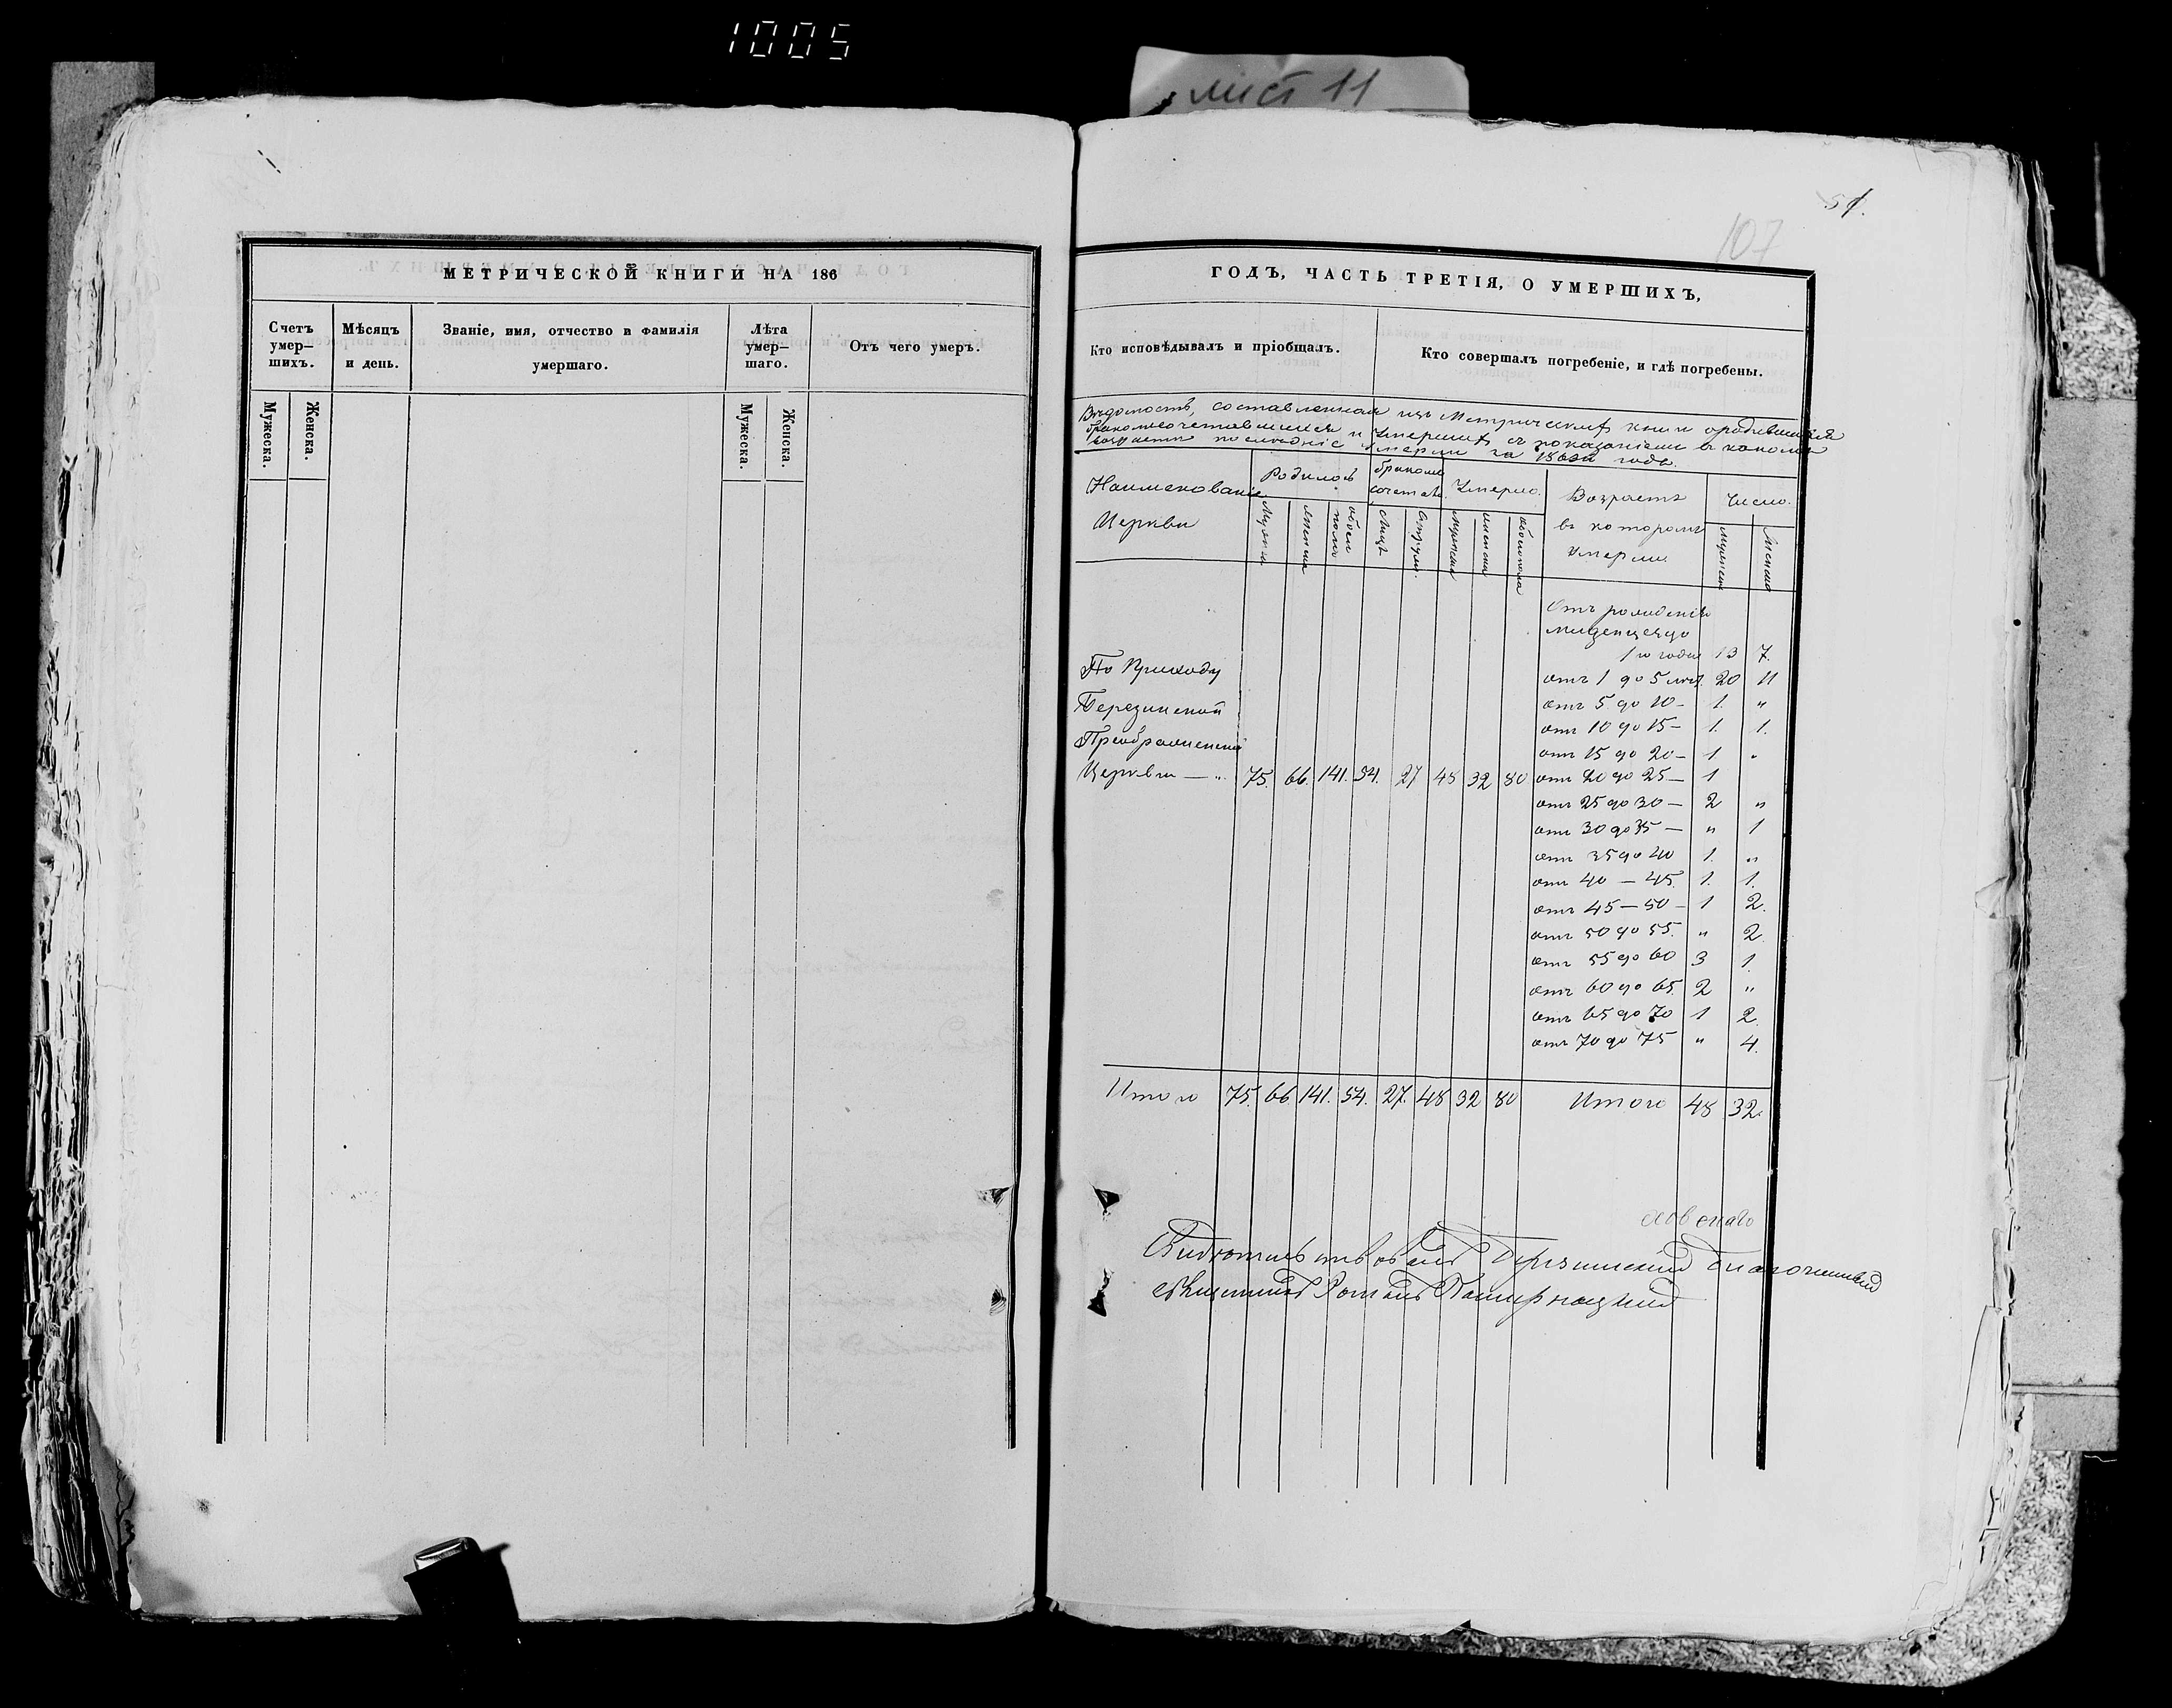 1005
лист 11
51.
107
МЕТРИЧЕСКОЙ КНИГИ НА 186
Счетъ умер-шихъ. Мѣсяцъ и день. Званіе, имя, отчество и фамилія умершаго. Лѣта умер-шаго. Отъ чего умеръ.
Мужеска. Женска. Мужеска. Женска.
ГОДЪ, ЧАСТЬ ТРЕТІЯ, О УМЕРШИХЪ,
Кто исповѣдывалъ и пріобщалъ. Кто совершалъ погребеніе, и гдѣ погребены.
Вѣдомость, составленная изъ Метрическихъ книгъ о родившихся
бракомъ сочетавшихся и Умершихъ съ показаніемъ въ какомъ
возрастѣ послѣдніе умерли за годъ.
Наименованіе Церкви Родилось бракомъ сочетав. Умерло. Возрастъ въ которомъ Умерли Число.
Мужеска женска обоего пола Лицъ Супруж. мужеска женска обоего пола мужеска женска
Отъ рожденія
младенцевъ до
1го года 13 7.
По Приходу
отъ 1 до 5 лѣтъ. 20 11
Березинской
отъ 5 до 10 - 1. "
Преображенской
отъ 10 до 15 - 1. 1.
отъ 15 до 20 - 1 "
Церкви — " 75. 66. 141. 54. 27 48 32 80 отъ 20 до 25 — 1
отъ 25 до 30 — 2 "
отъ 30 до 35 — " 1
отъ 35 до 40 1. "
отъ 40 — 45. 1. 1.
отъ 45 — 50 - 1 2.
отъ 50 до 55. " 2.
отъ 55 до 60 3 1.
отъ 60 до 65. 2 "
отъ 65 до 70 1 2.
отъ 70 до 75 " 4.
Итого 75. 66. 141. 54. 27. 48 32 80 Итого 48 32.
Свидѣтельствовалъ Березинскій Благочинный
священникъ Романъ